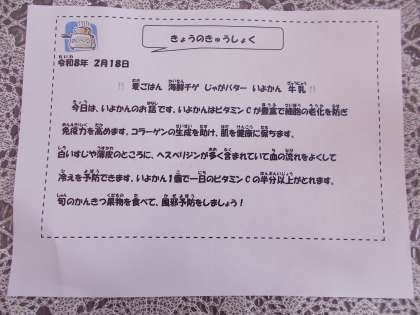 きょうのきゅうしょく
令和8年 2月18日
!! 麦ごはん 海鮮チゲ じゃがバター いよかん 牛乳 !!
今日は、いよかんのお話です。いよかんはビタミンCが豊富で細胞の老化を防ぎ
免疫力を高めます。コラーゲンの生成を助け、肌を健康に保ちます。
白いすじや薄皮のところに、ヘスペリジンが多く含まれていて血の流れをよくして
冷えを予防できます。いよかん1個で一日のビタミンCの半分以上がとれます。
旬のかんきつ果物を食べて、風邪予防をしましょう!